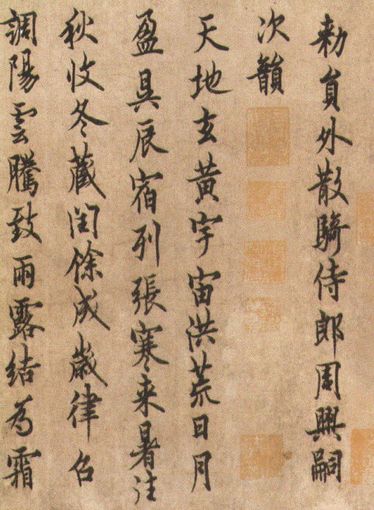 勅員外散騎侍郎周興嗣
次韻
天地玄黄宇宙洪荒日月
盈昃辰宿列張寒来暑往
秋收冬蔵閏餘成歳律召
調陽雲騰致雨露結為霜